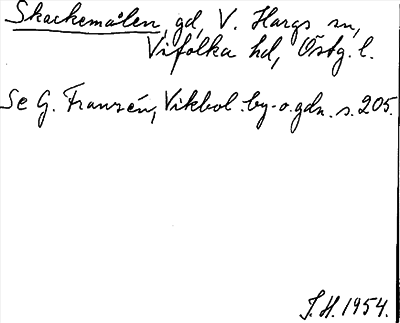 Skackemålen, gd, V. Hargs sn,
Vifolka hd, Östg. l.
Se G. Franzén, Vikbol. by- o. gdn. s. 205.
J.H. 1954.